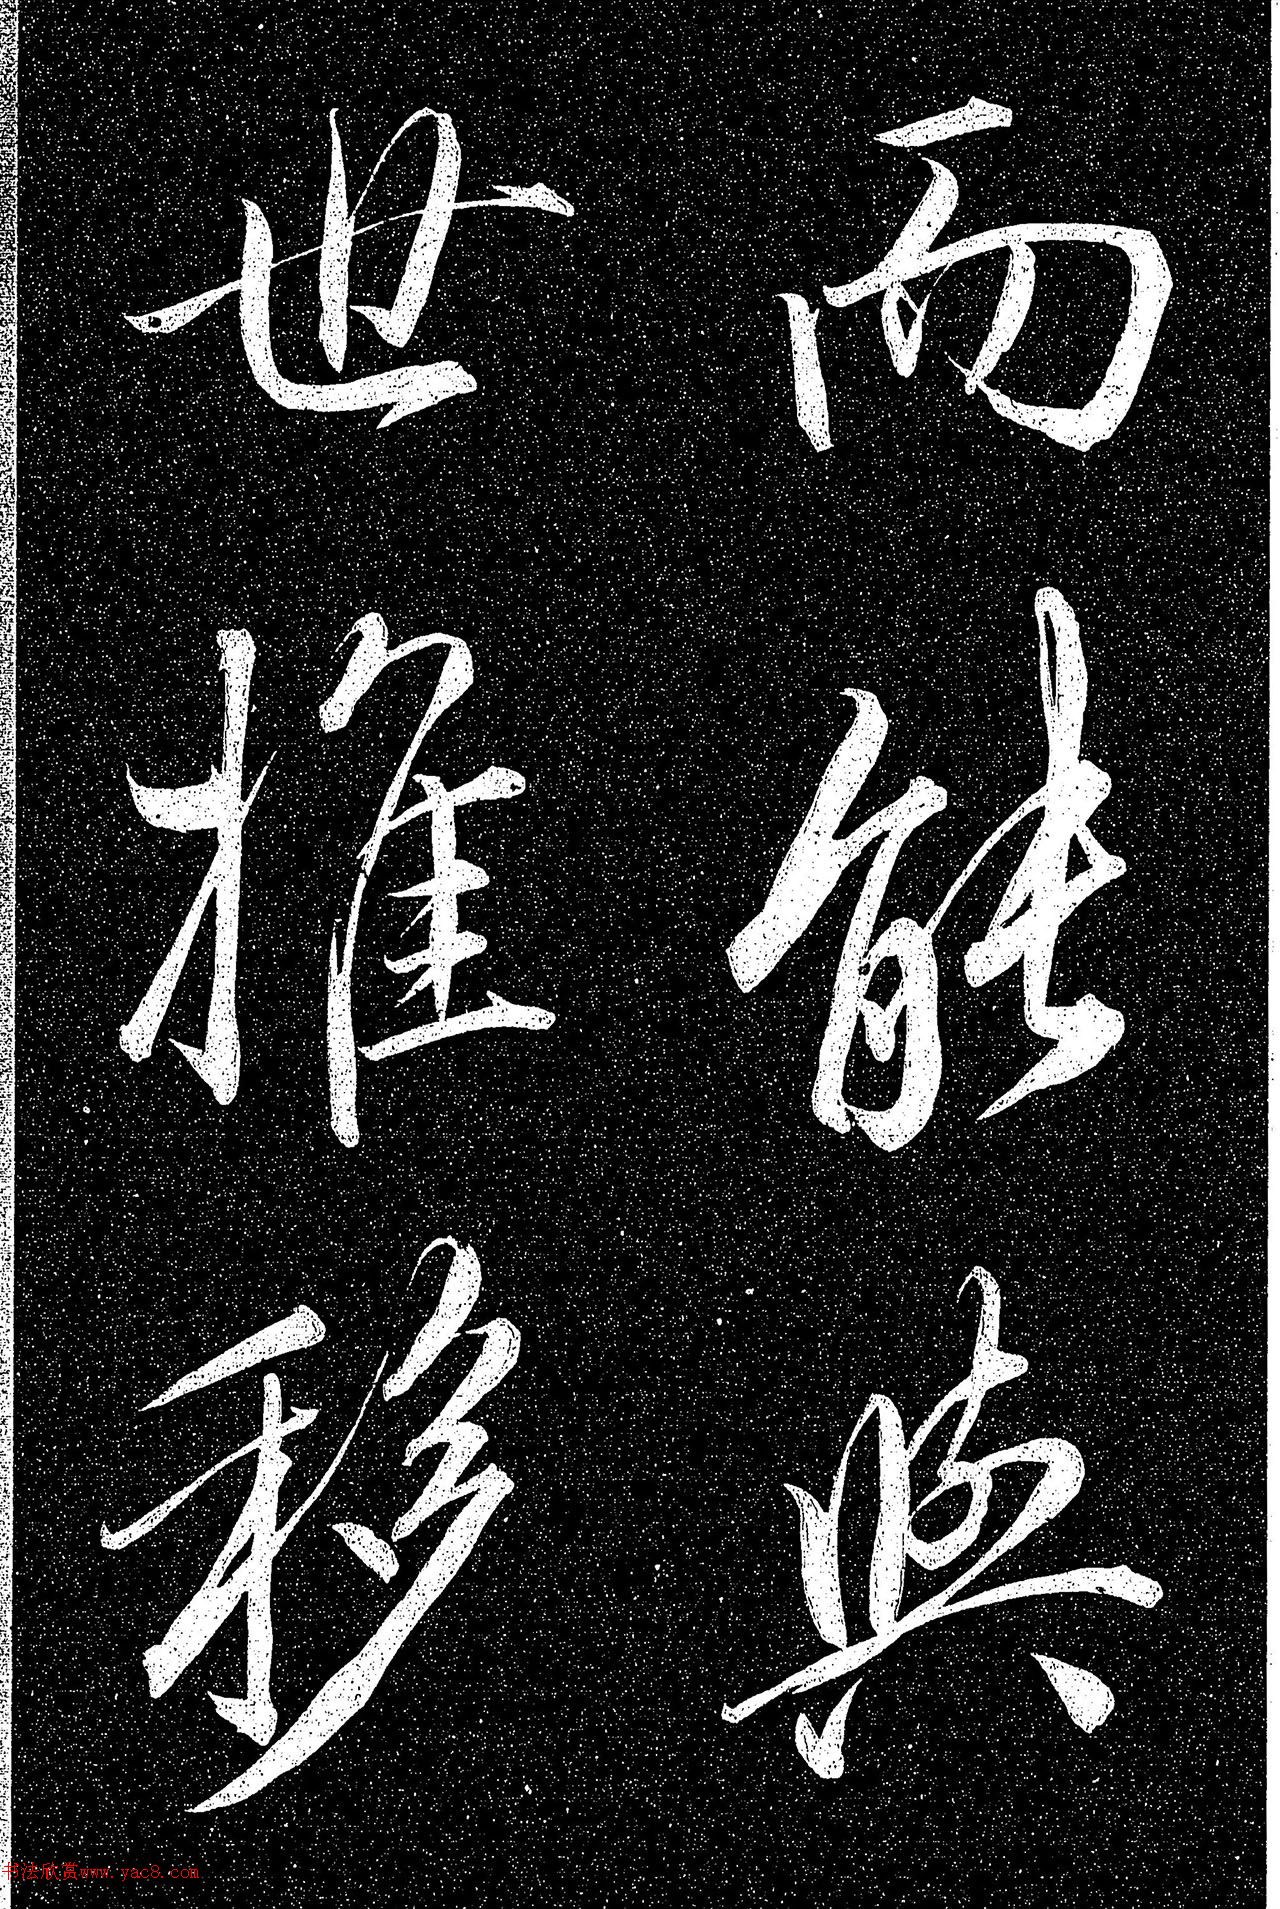 而能與
世推移
书法欣赏www.yac8.com